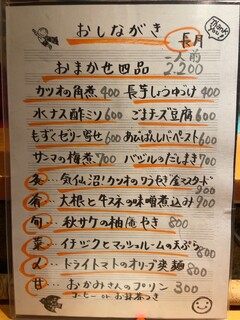 おしながき
Thank you♪
長月
おまかせ四品 一人前 2.200
カツオの角煮 400 長芋しょうゆづけ 400
水ナス酢ミソ 600 ごまチーズ豆腐 600
もずくゼリー寄せ 600 レバーペースト 600
サンマの梅煮 700 バジルのだしまき 700
気仙沼!カツオのタタキ 金マスタード 900
大根と牛スネの味噌煮込み 900
旬… 秋サケの柚庵やき 800
菜… イチジクとマッシュルームの天ぷら 800
〆… ドライトマトのオリーブ素麺 800
甘… おかみさんのプリン 300
コーヒー or お抹茶つき